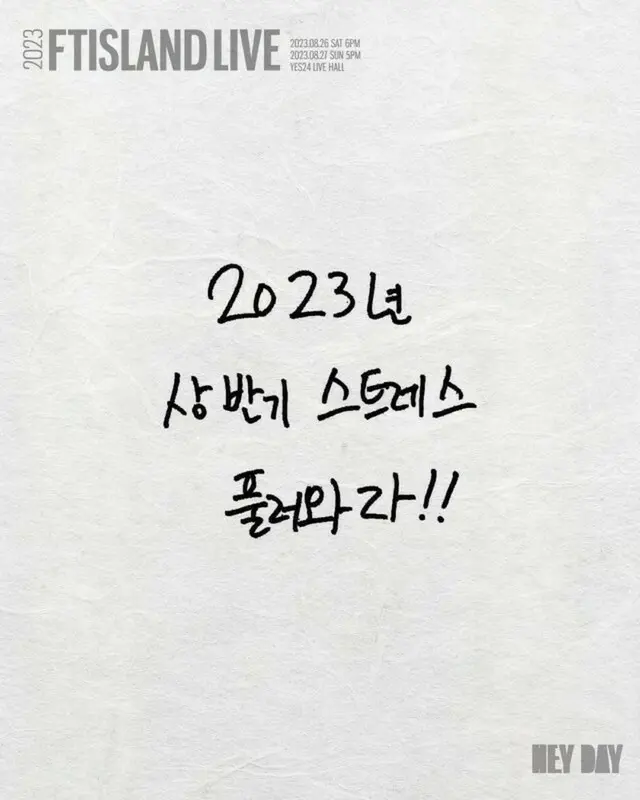 2023 FTISLAND LIVE
2023.08.26 SAT 6PM
2023.08.27 SUN 5PM
YES24 LIVE HALL
2023년
상반기 스트레스
풀러와라!!
HEY DAY